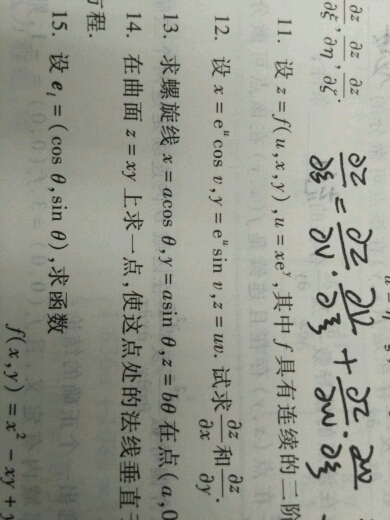 ∂z/∂ξ, ∂z/∂η, ∂z/∂ζ.
∂z/∂ξ = ∂z/∂v · ∂v/∂ξ + ∂z/∂w · ∂w/∂ξ
11. 设 z=f(u,x,y),u=xeʸ,其中 f 具有连续的二阶
12. 设 x=eᵘcos v,y=eᵘsin v,z=uv.试求 ∂z/∂x 和 ∂z/∂y.
13. 求螺旋线 x=acos θ,y=asin θ,z=bθ 在点(a,0
14. 在曲面 z=xy 上求一点,使这点处的法线垂直
方程.
15. 设 eₗ=(cos θ,sin θ),求函数
f(x,y)=x²-xy+y